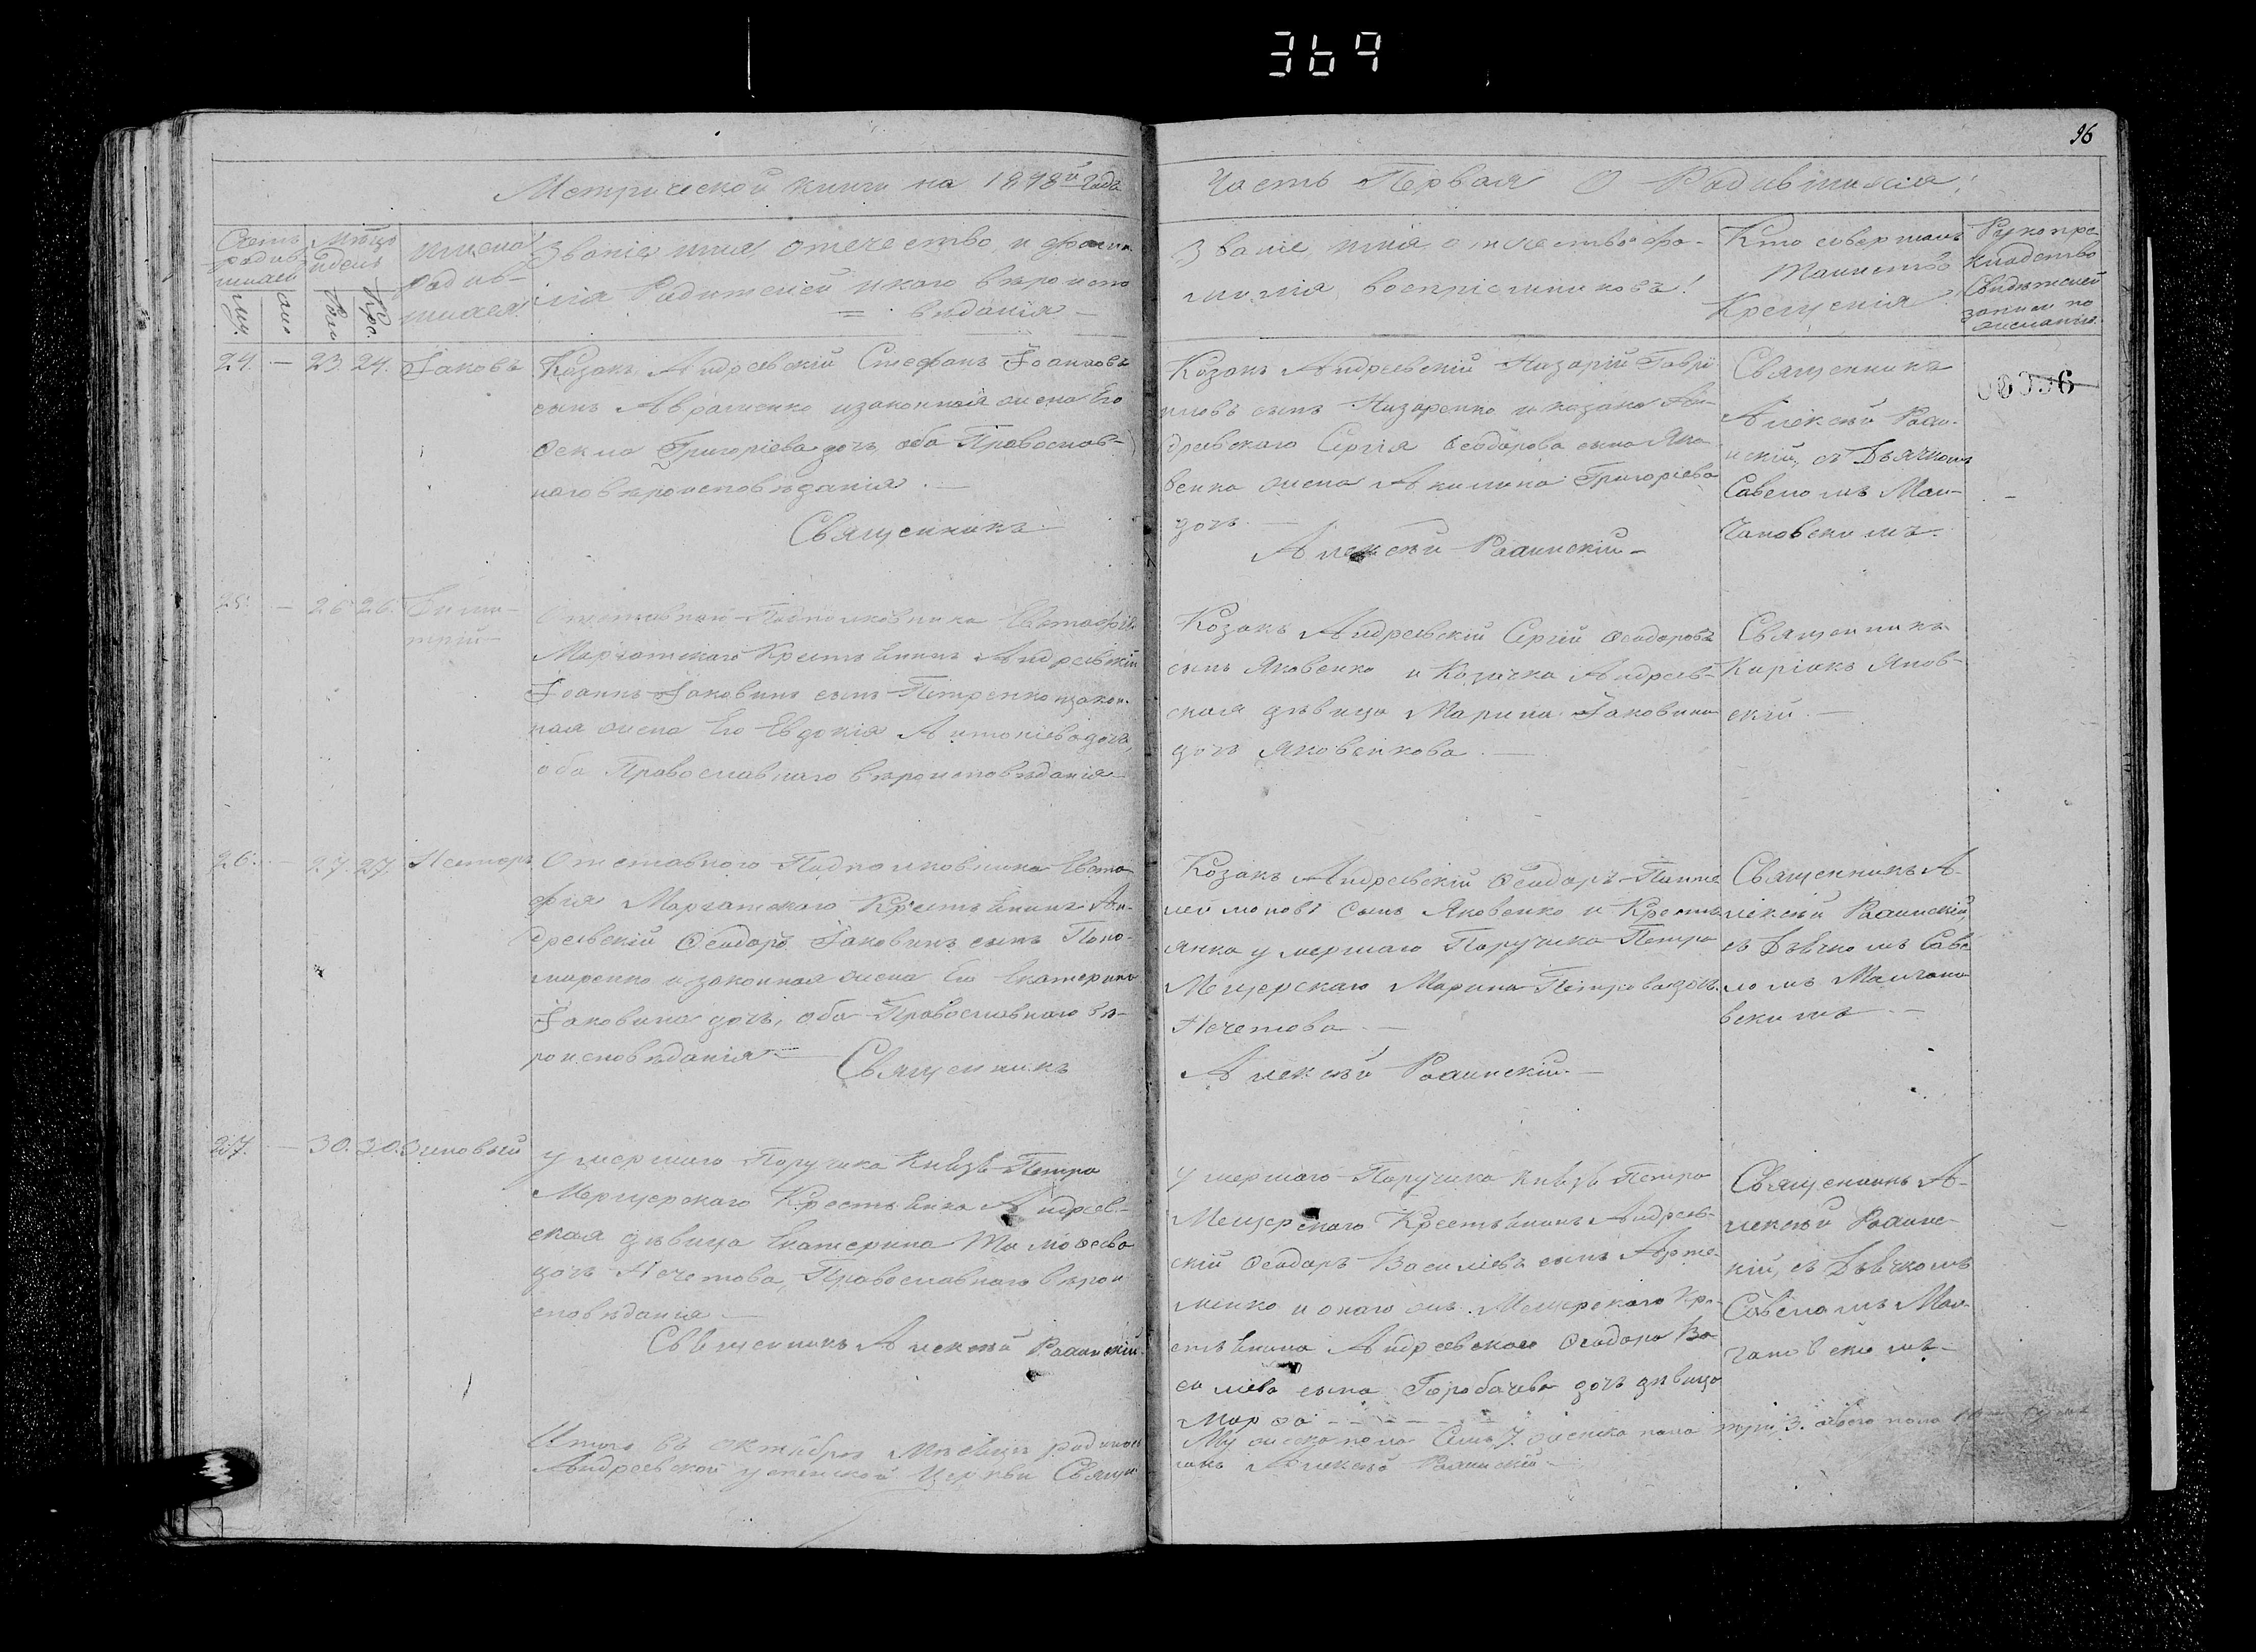 369
96
Метрической книги на 1848й года
Часть Первая О Родившихся!
Счетъ родившихся
муж.
жен
Мѣсяцъ и день
Рож
Кре.
имена родившихся
Званіе имя, отечество и фамилія Родителей и каго вѣроисповѣданія
Званіе, имя, отечество и фамилія воспріемниковъ!
Кто совершалъ таинство Крещенія
Рукоприкладство свидѣтелей записи по желанію
24. — 23. 24. Іаковъ
Козакъ Андреевскій Стефанъ Іоанновъ
сынъ Авраменко и законная жена Его
Ѳекла Григоріева дочь, оба Православ-
наго вѣроисповѣданія. —
Священникъ
Козакъ Андреевскій Назарій Гаврі
иловъ сынъ Назаренко и казака Ан-
дреевскаго Сергія Ѳеодорова сына Яко
венка жена Акилина Григоріева
дочь. —
Алексѣй Рааинскій —
Священникъ
Алексѣй Рааи-
нскій, съ Дьячкомъ
Савеломъ Мал-
чановскимъ.
25. — 26 26. Дими-
трій —
Отставнаго Подполковника Евстафія
Марчатскаго Крестьянинъ Андреевскій
Іоаннъ Іаковинъ сынъ Петренко и закон-
ная жена Его Евдокія Антоніева дочь,
оба Православнаго вѣроисповѣданія —
Козакъ Андреевскій Сергій Ѳеодоровъ
сынъ Яковенко и Козачка Андреев-
ская дѣвица Марина Іаковина
дочь Яковенкова —
Священникъ
Киріакъ Янов-
скій. —
26. — 27. 27. Несторъ
Отставнаго Подполковника Евста-
фія Марчатскаго Крестьянинъ Ан-
дреевскій Ѳеодоръ Іаковинъ сынъ Поно-
маренко и законная жена Его Екатерина
Іаковина дочь, оба Православнаго вѣ-
роисповѣданія — Священникъ
Козакъ Андреевскій Ѳеодоръ Панте
леимоновъ сынъ Яковенко и Кресть
янка умершаго Поручика Петра
Мещерскаго Марина Петрова дочь.
Нечетова —
Алексѣй Рааинскій. —
Священникъ А-
лексѣй Рааинскій
съ Дьячкомъ Саве
ломъ Малчано
вскимъ —
27. — 30. 30. Зиновій
Умершаго Поручика Князя Петра
Мерщерскаго Крестьянка Андреев-
ская дѣвица Екатерина Тимоѳеева
дочь Нечетова, Православнаго вѣрои
сповѣданія —
Священникъ Алексѣй Рааинскій.
Умершаго Поручика Князя Петра
Мещерскаго Крестьянинъ Андреев-
скій Ѳеодоръ Василіевъ сынъ Арте-
менко и онаго жъ Мещерскаго Кре-
стьянина Андреевскаго Ѳеодора Ва-
силіева сына Горобачева дочь дѣвица
Марѳа — — — — —
Священникъ А-
лексѣй Рааинс-
кій, съ Дьячкомъ
Савеломъ Мал-
чановскимъ —
Итого въ октябрѣ Мѣсяцѣ родилось
Мужеска пола Семь 7. женска пола три 3. обоего пола 10
Андреевской успенской Церкви Священ
никъ Алексѣй Рааинскій —